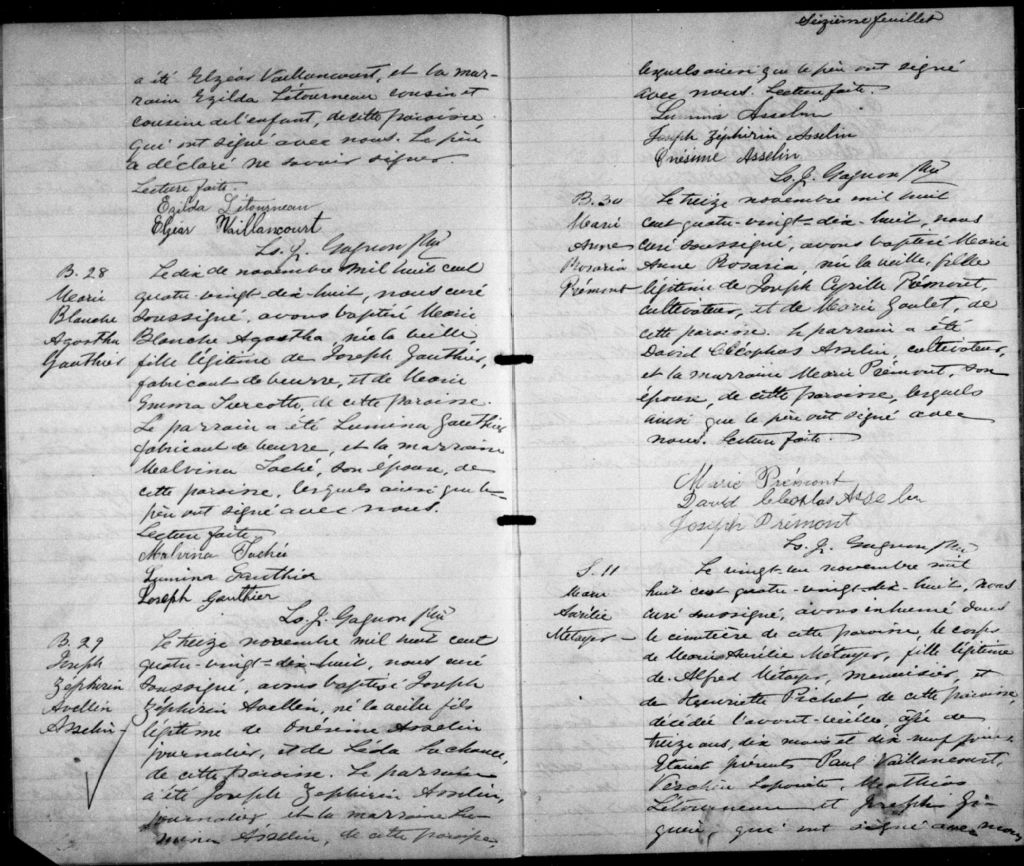 a été Elzéar Vaillancourt, et la mar-
raine Exilda Létourneau cousin et
cousine de l'enfant, de cette paroisse
qui ont signé avec nous. Le père
a déclaré ne savoir signer.
Lecture faite.
Exilda Létourneau
Elzéar Vaillancourt
Ls. J. Gagnon Ptre
B. 28
Marie
Blanche
Agostha
Gauthier
Le dix de novembre mil huit cent
quatre-vingt-dix-huit, nous curé
soussigné, avons baptisé Marie
Blanche Agostha, née la veille,
fille légitime de Joseph Gauthier,
fabricant de beurre, et de Marie
Emma Turcotte, de cette paroisse.
Le parrain a été Lumina Gauthier
fabricant de beurre, et la marraine
Malvina Taché, son épouse, de
cette paroisse, lesquels ainsi que le
père ont signé avec nous.
Lecture faite
Malvina Taché
Lumina Gauthier
Joseph Gauthier
Ls. J. Gagnon Ptre
B. 29
Joseph
Zéphirin
Avellin
Asselin
Le treize novembre mil huit cent
quatre-vingt-dix-huit, nous curé
soussigné, avons baptisé Joseph
Zéphirin Avellin, né la veille fils
légitime de Onésime Asselin
journalier, et de Léda Lachance,
de cette paroisse. Le parrain
a été Joseph Zéphirin Asselin,
journalier et la marraine Lu-
mina Asselin, de cette paroisse
Seizième feuillet
lesquels ainsi que le père ont signé
avec nous. Lecture faite.
Lumina Asselin
Joseph Zéphirin Asselin
Onésime Asselin
Ls. J. Gagnon Ptre
B. 30
Marie
Anne
Rosaria
Prémont
Le treize novembre mil huit
cent quatre-vingt-dix-huit, nous
curé soussigné, avons baptisé Marie
Anne Rosaria, née la veille, fille
légitime de Joseph Cyrille Prémont,
cultivateur, et de Marie Goulet, de
cette paroisse. Le parrain a été
David Cléophas Asselin, cultivateur,
et la marraine Marie Prémont, son
épouse, de cette paroisse, lesquels
ainsi que le père ont signé avec
nous. Lecture faite.
Marie Prémont
David Cléophas Asselin
Joseph Prémont
Ls. J. Gagnon Ptre
S. 11
Marie
Aurélie
Métayer
Le vingt-un novembre mil
huit cent quatre-vingt-dix-huit, nous
curé soussigné, avons inhumé dans
le cimetière de cette paroisse, le corps
de Marie Aurélie Métayer, fille légitime
de Alfred Métayer, menuisier, et
de Henriette Pichet, de cette paroisse,
décédée l'avant-veille, âgée de
treize ans, dix mois et dix neuf jours.
Etaient présents Paul Vaillancourt,
Lapointe, Mathias
Létourneau et Joseph Gi-
guère, qui ont signé avec nous